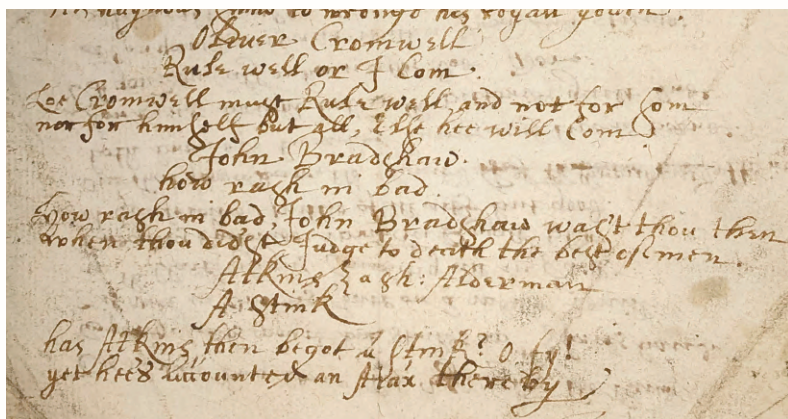 to wronge his royall youth.
Oliver Cromwell
Rule well or I Com.
Loe Cromwell must Rule well, and not for som
nor for himself but all, Else hee will Com
John Bradshaw.
how rash in bad.
How rash in bad, John Bradshaw wast thou then
When thou didst Judge to death the best of men.
Atkins Alderman
A Stink
has Atkins then begot a Stink? O fy!
yet hees accounted an Ajax thereby